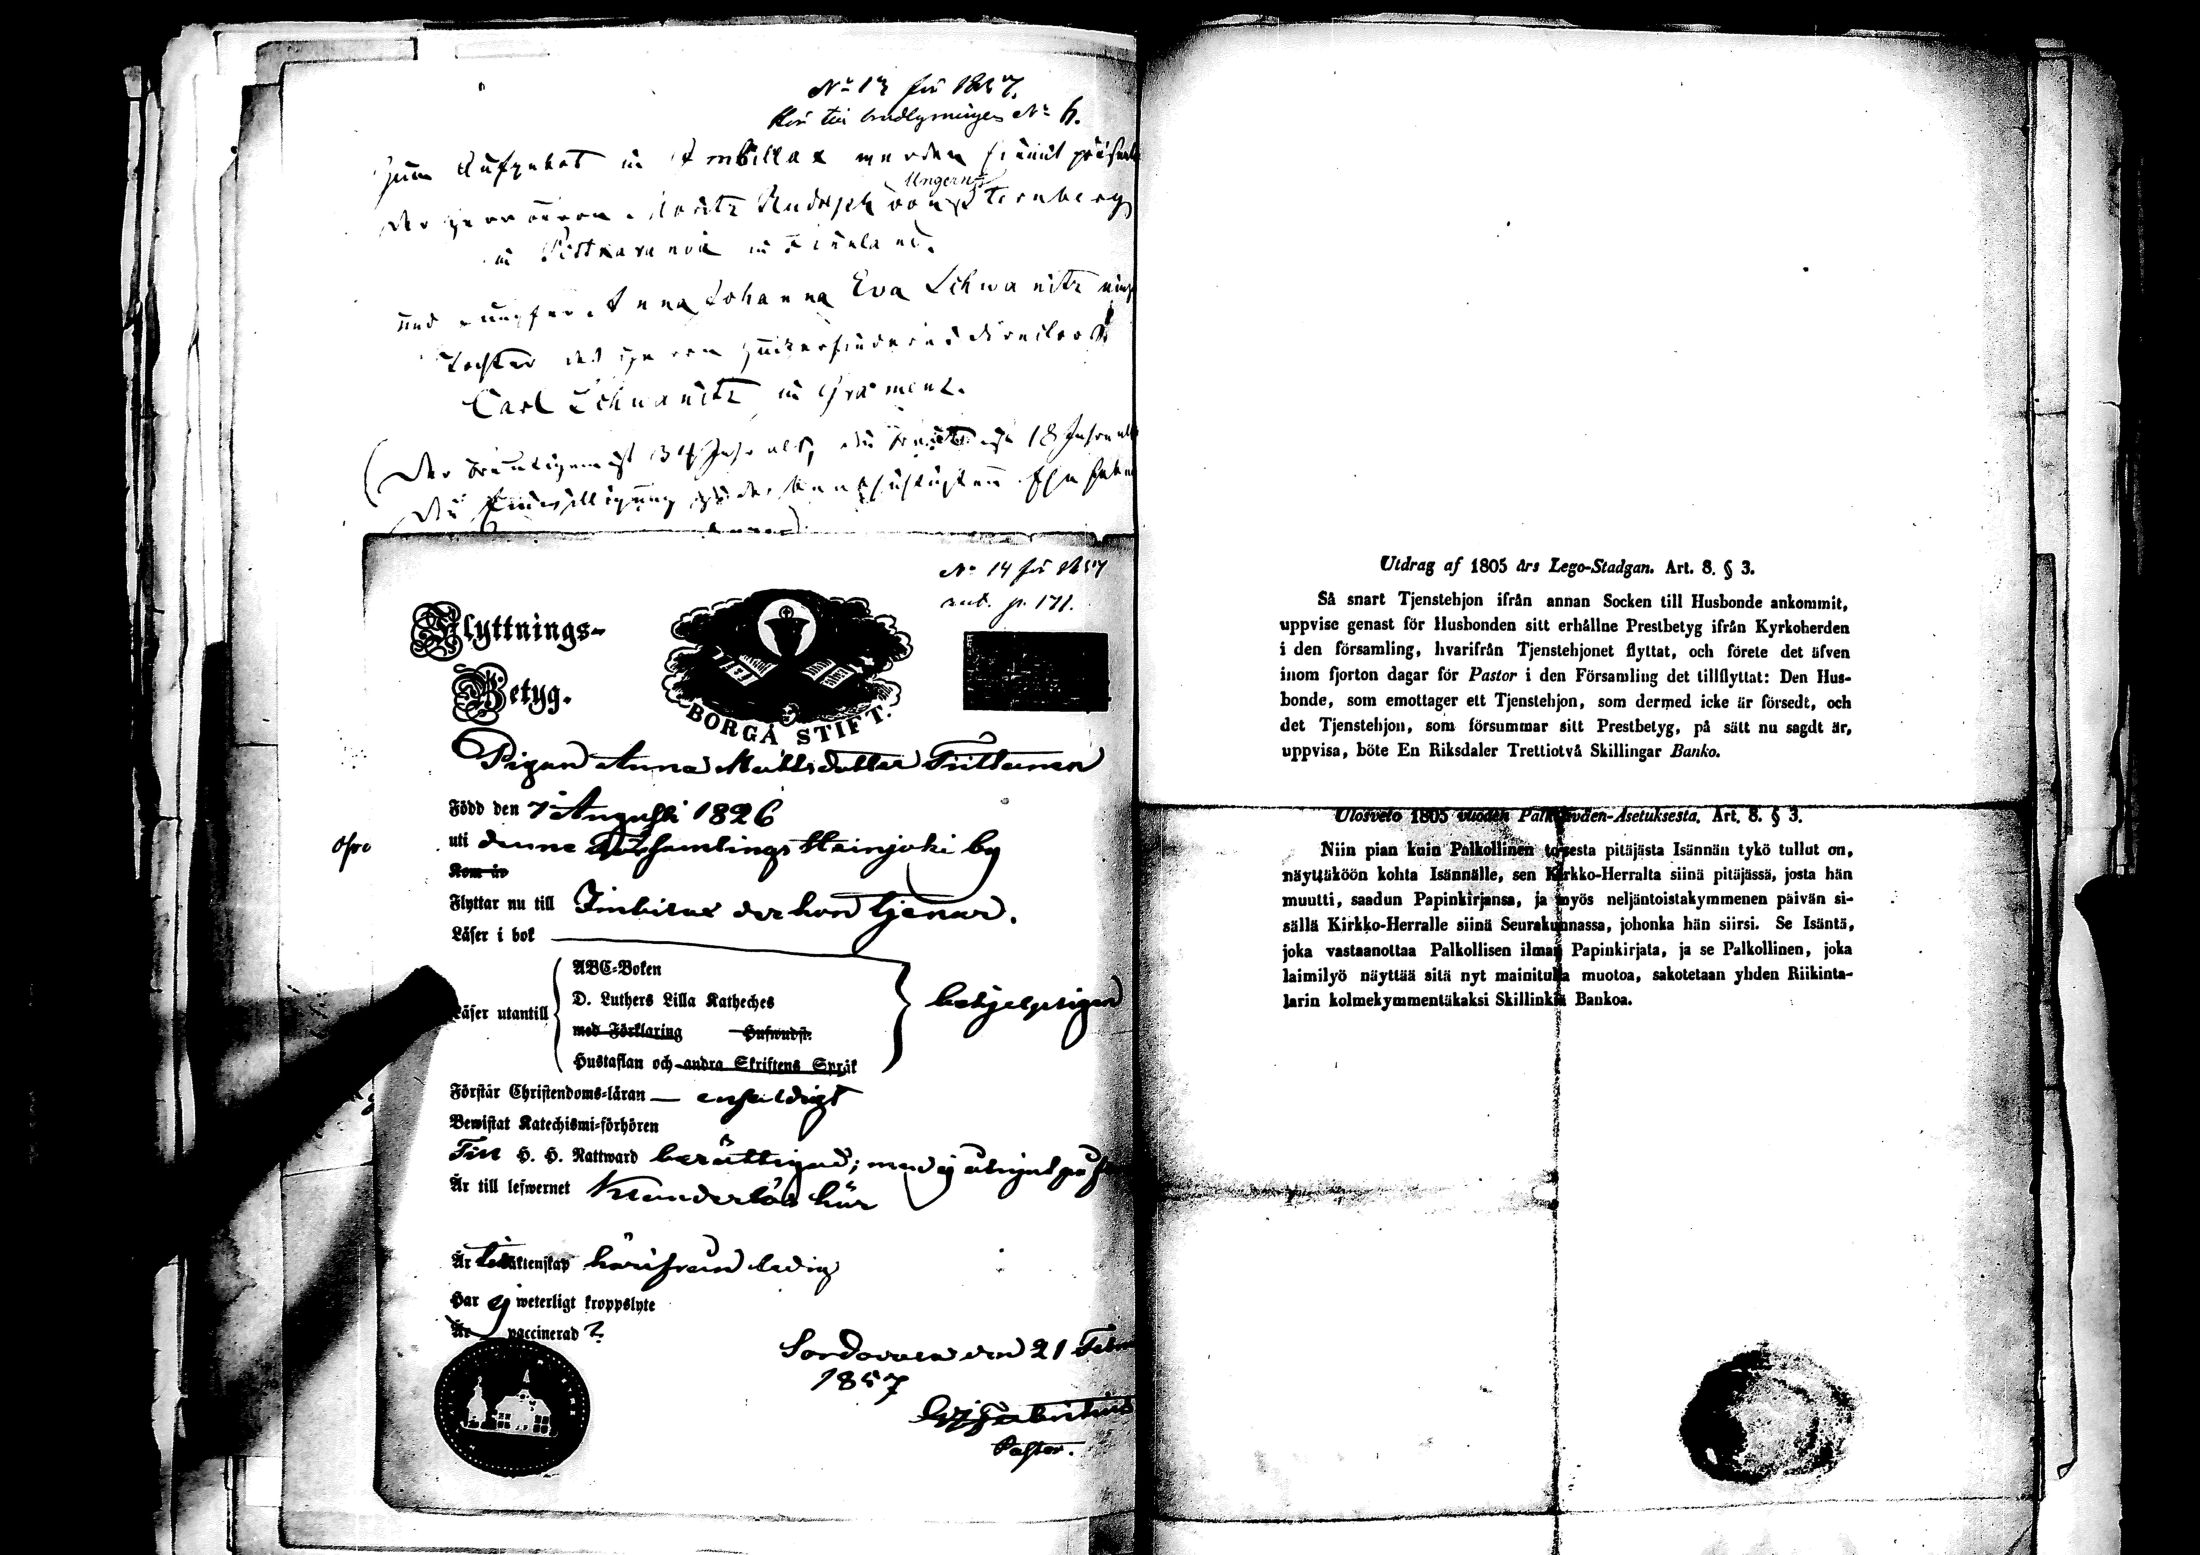 No 13 för 1857.
Hör till Andlysningen No 6.
Zum Aufgebot in Imbilax werden hiemit
Der Herr Baron Moritz Rudolph von Ungern Sternberg
in Pitkaranda in Finland.
und Jungfer Anna Johanna Eva Schwanitz
Tochter des Herrn directors
Carl Schwanitz in
(Der Bräutigam ist 34 Jahr alt, die Braut ist 18 Jahr alt
die Einwilligung zu der beabsichtigten Ehe haben
No 14 för 1857
p. 171.
Flyttnings-
Betyg.
BORGÅ STIFT.
Pigan Anna Mattsdotter Tiittanen
Född den 7 Augusti 1826
uti denne Församlings by
Kom är
Flyttar nu till Imbilax der hon tjenar.
Läser i bok
Läser utantill
ABC-Boken
D. Luthers Lilla Katheches
med Förklaring Hufwudst.
Hustaflan och andra Skriftens Språk
behjelpligen
Förstår Christendoms-läran — enfaldigt
Bewistat Katechismi-förhören
Till H. H. Nattward berättigad; men ej
Är till lefwernet klanderlös här
Är till äktenskap härifrån ledig
Har ej weterligt kroppslyte
Är vaccinerad ?
Sordavala den 21 Febr
1857
Pastor.
Utdrag af 1805 års Lego-Stadgan. Art. 8. § 3.
Så snart Tjenstehjon ifrån annan Socken till Husbonde ankommit,
uppvise genast för Husbonden sitt erhållne Prestbetyg ifrån Kyrkoherden
i den församling, hvarifrån Tjenstehjonet flyttat, och förete det äfven
inom fjorton dagar för Pastor i den Församling det tillflyttat: Den Hus-
bonde, som emottager ett Tjenstehjon, som dermed icke är försedt, och
det Tjenstehjon, som försummar sitt Prestbetyg, på sätt nu sagdt är,
uppvisa, böte En Riksdaler Trettiotvå Skillingar Banko.
Ulosveto 1805 vuoden Palkkaväen-Asetuksesta. Art. 8. § 3.
Niin pian kuin Palkollinen toisesta pitäjästä Isännän tykö tullut on,
näyttäköön kohta Isännälle, sen Kirkko-Herralta siinä pitäjässä, josta hän
muutti, saadun Papinkirjansa, ja myös neljäntoistakymmenen päivän si-
sällä Kirkko-Herralle siinä Seurakunnassa, johonka hän siirsi. Se Isäntä,
joka vastaanottaa Palkollisen ilman Papinkirjata, ja se Palkollinen, joka
laimilyö näyttää sitä nyt mainitulla muotoa, sakotetaan yhden Riikinta-
larin kolmekymmentäkaksi Skillinkiä Bankoa.